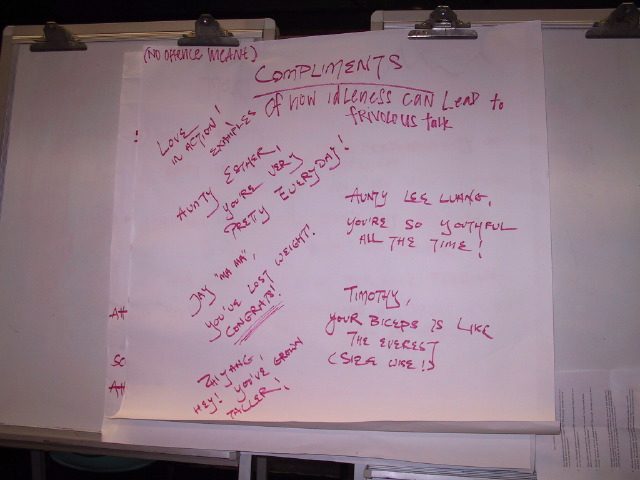 (NO OFFENCE MEANT)
COMPLIMENTS
Of how idleness can lead to
frivolous talk
LOVE
IN ACTION!
EXAMPLES
AUNTY ESTHER,
YOU'RE VERY
PRETTY EVERYDAY!
AUNTY LEE LUANG,
YOU'RE SO YOUTHFUL
ALL THE TIME!
JAY "MA MA",
YOU'VE LOST WEIGHT!
CONGRATS!
TIMOTHY,
YOUR BICEPS IS LIKE
THE EVEREST
(SIZE WISE!)
ZHIYANG,
HEY! YOU'VE GROWN
TALLER!
SO